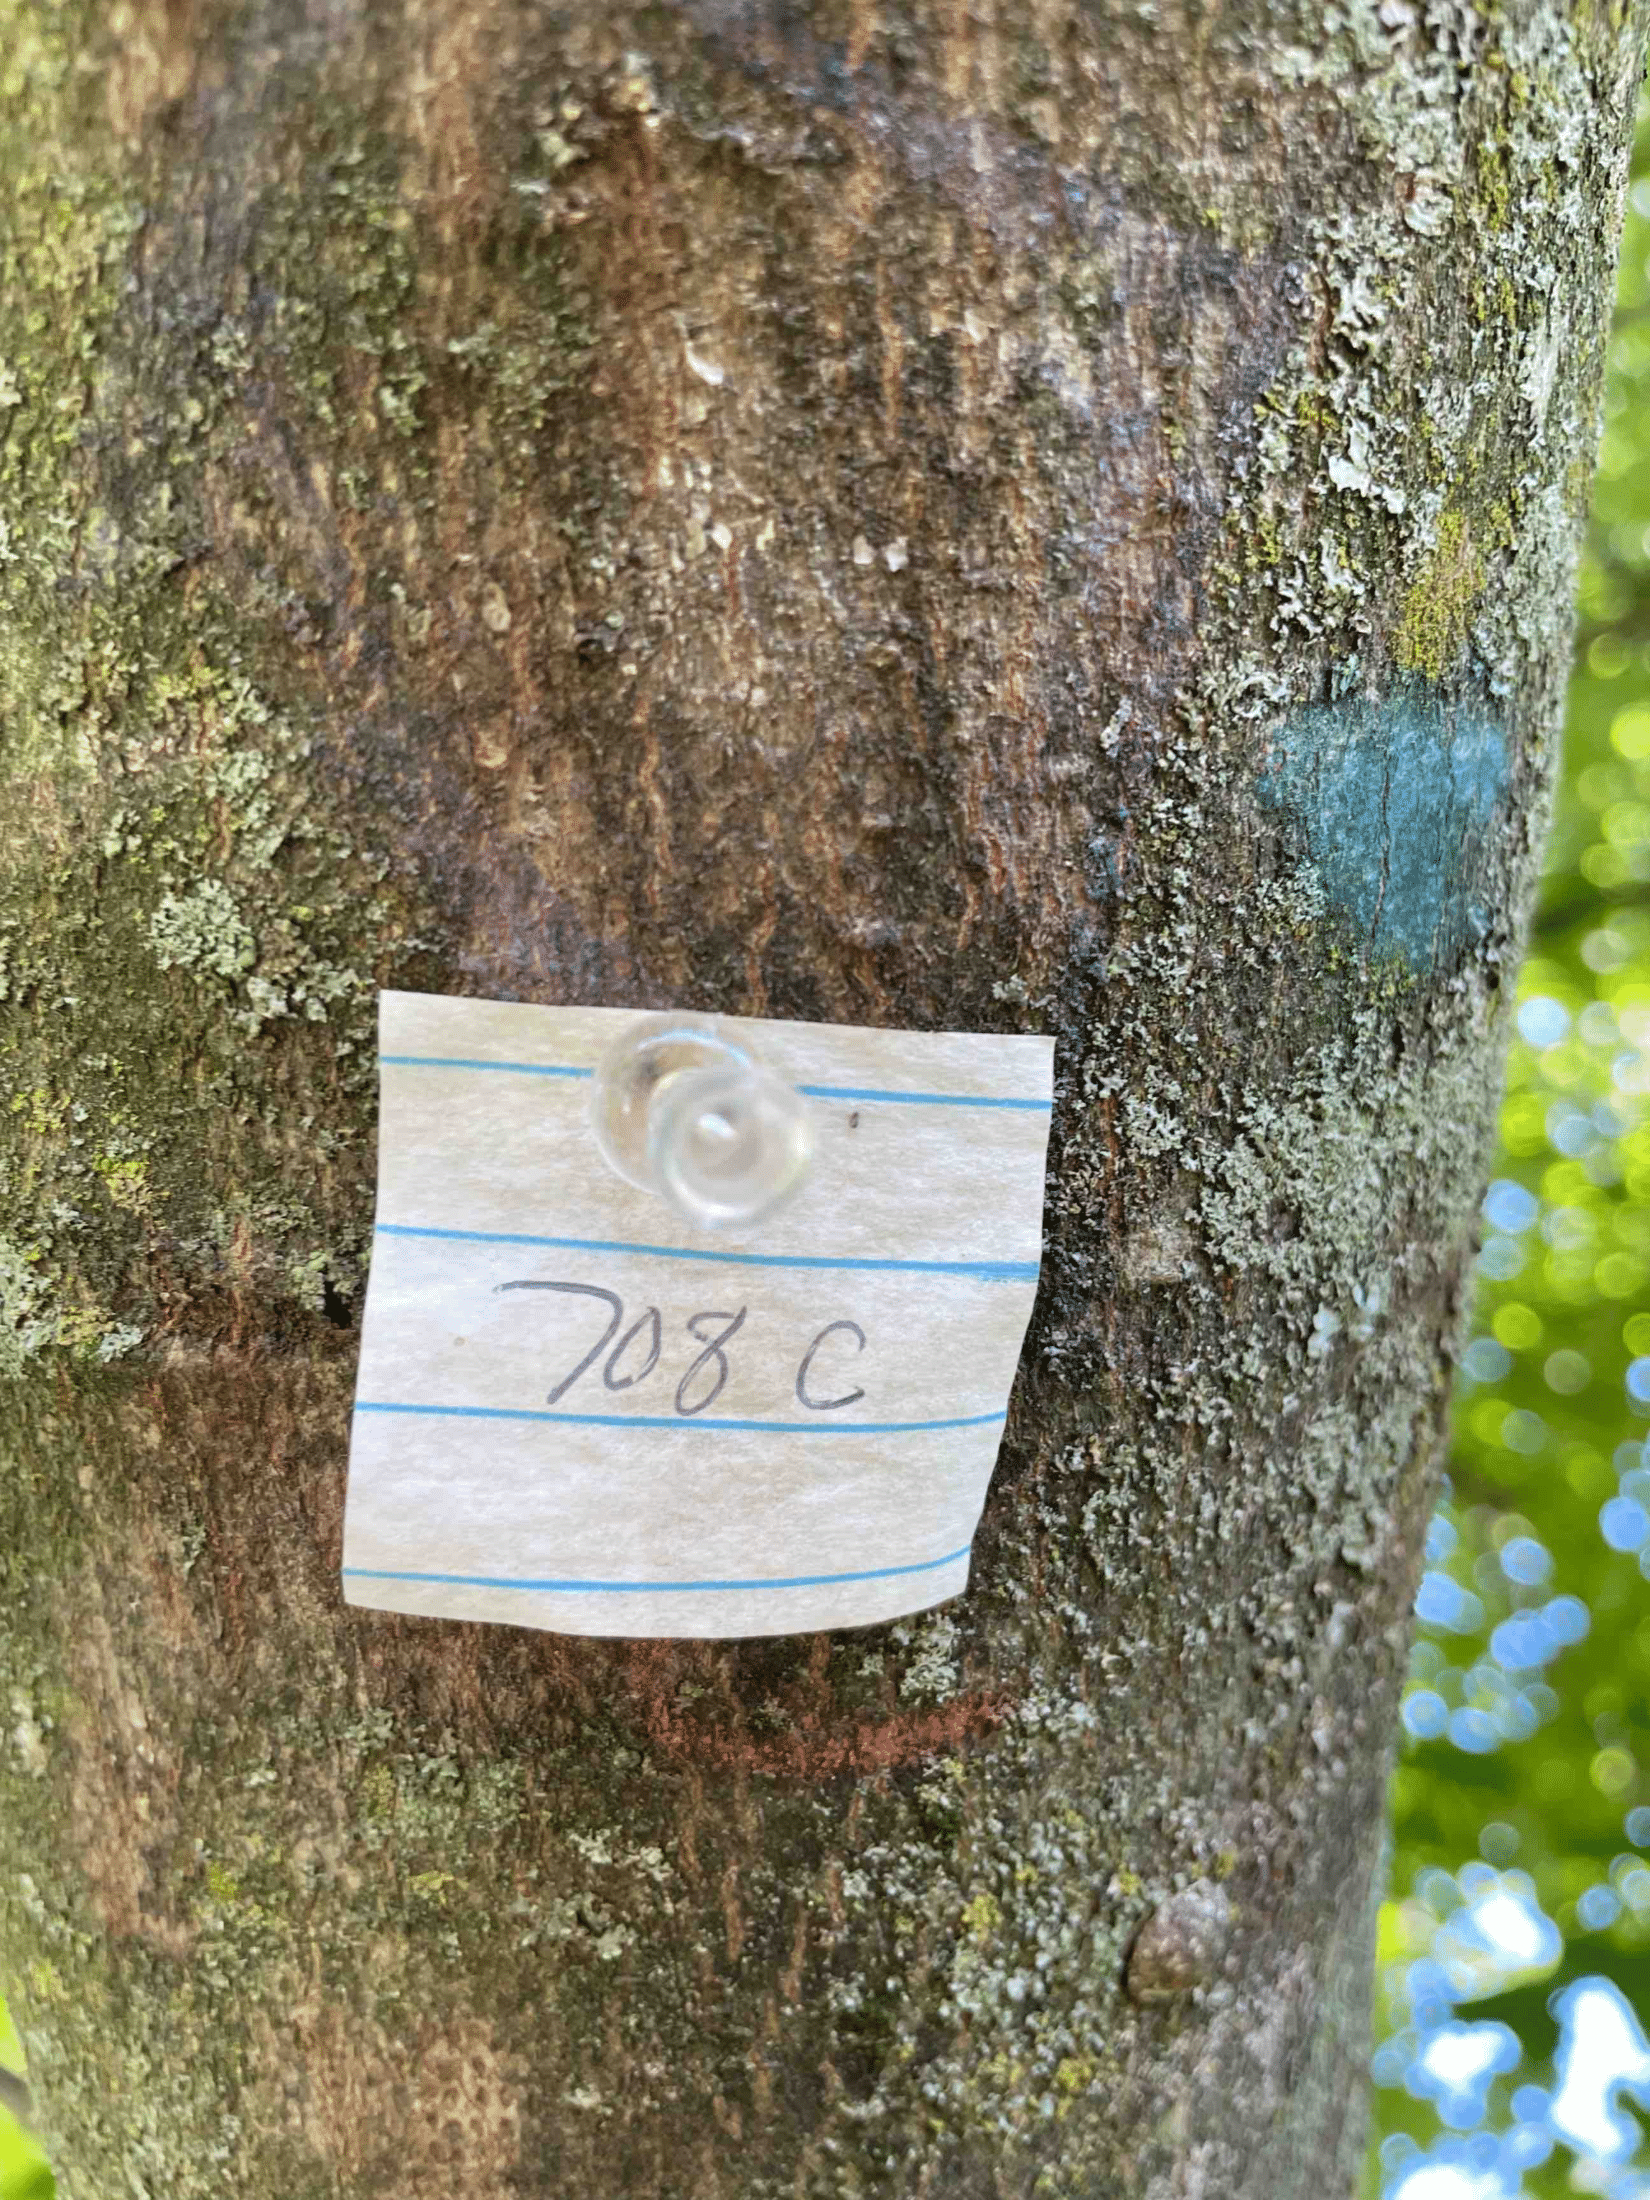 708 C